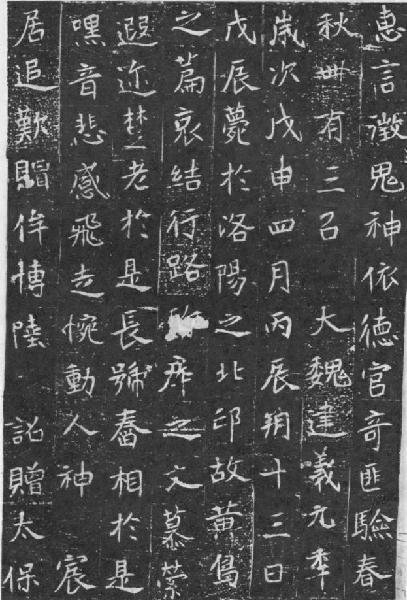 惠言徵鬼神依德官奇匪驗春
秋卌有三召　大魏建義元年
歲次戊申四月丙辰朔十三日
戊辰薨於洛陽之北邙故黃鳥
之篇哀結行路之文慕縈
遐迩楚老於是長號舂相於是
嘿音悲感飛走惋動人神　宸
居追歎賵侔博陸　詔贈太保